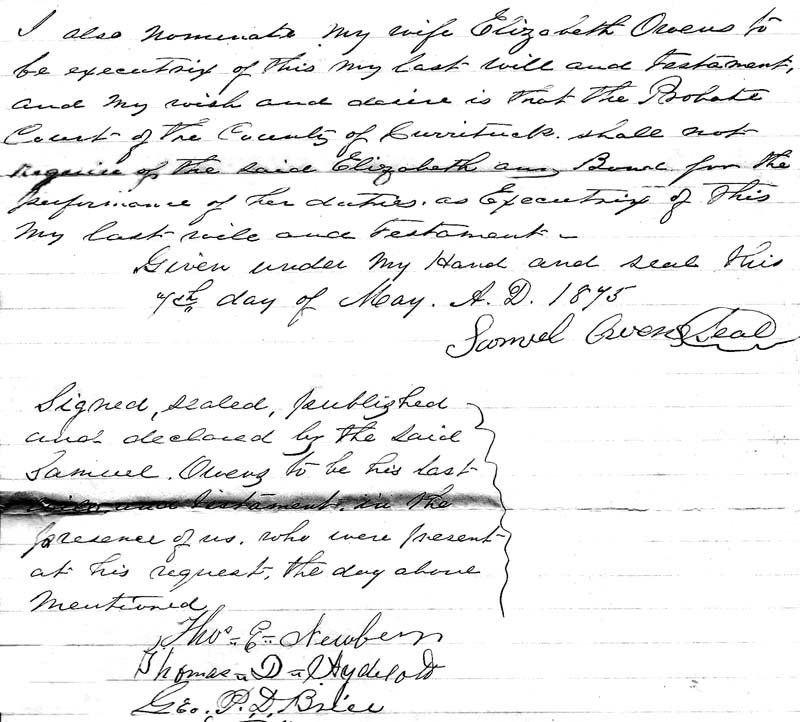 I also nominate my wife Elizabeth Owens to
be executrix of this my last will and testament,
and my wish and desire is that the Probate
Court of the County of Currituck. shall not
require of the said Elizabeth any Bond for the
performance of her duties. as Executrix of this
my last will and testament-
Given under my Hand and seal this
7th day of May. A. D. 1875
Samuel Owens Seal
Signed, sealed, published
and declared by the said
Samuel. Owens to be his last
will and testament. in the
presence of us. who were present
at his request, the day above
mentioned
Thos = E = Newbern
Thomas = D =
Geo. P. D. Brice